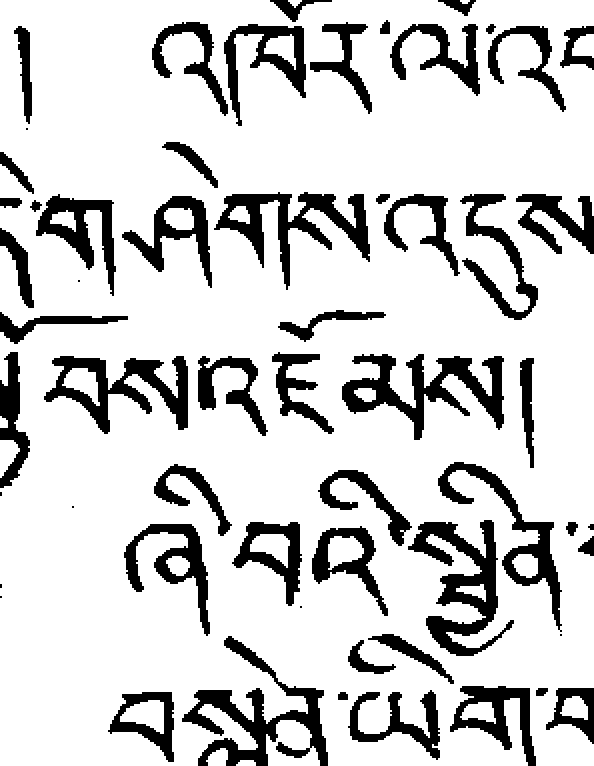 ། འཁོར་ལོ་འ
དེ་གཤེགས་འདུས
བས་འཛོམས།
ཞི་བའི་སྦྱིན་
བསྙེན་ཡིག་